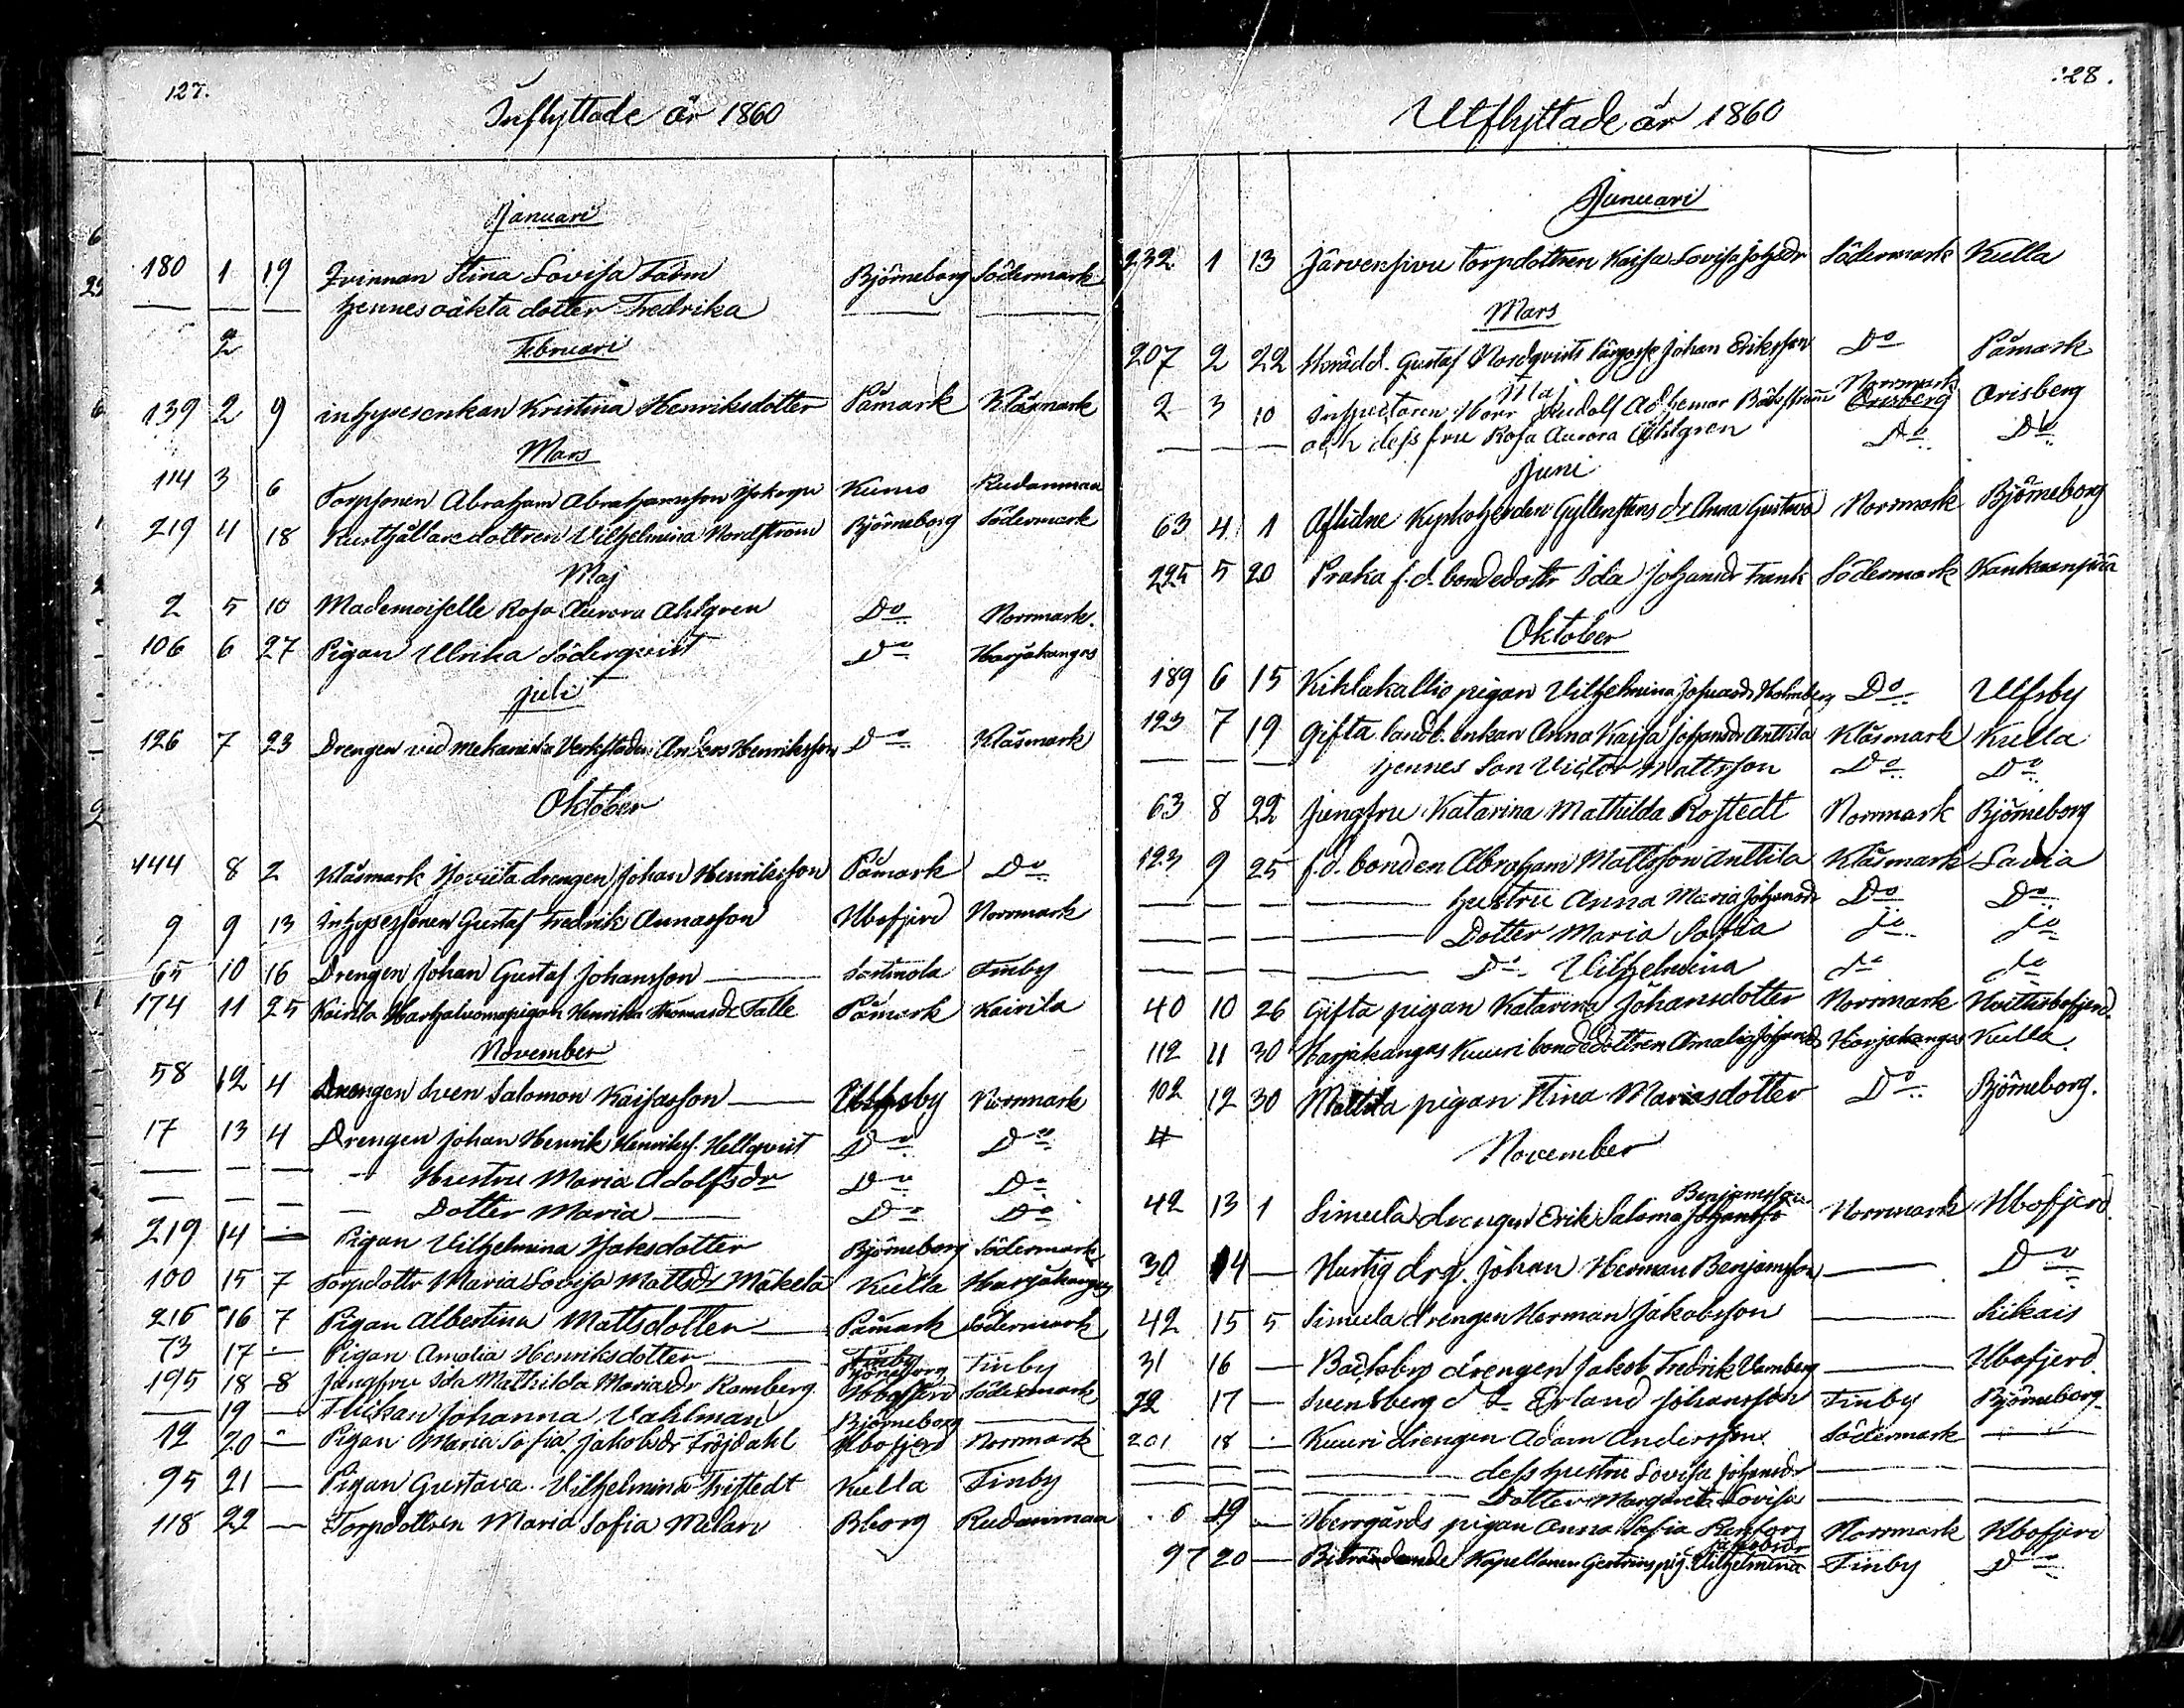 127.
Inflyttade år 1860
Januari
180 1 19 Qvinnan Stina Lovisa Björneborg Södermark
— — — hennes oäkta dotter Fredrika — —
2 Februari
139 2 9 inhysesenkan Kristina Henriksdotter Påmark Klåsmark
Mars
114 3 6 Torpsonen Abraham Abrahamsson Kumo Rudanmaa
219 4 18 Vilhelmina Nordström Björneborg Södermark
Maj
2 5 10 Mademoiselle Rosa Aurora Ahlgren Do Norrmark.
106 6 27 Pigan Ulrika Söderqvist Do Harjakangas
Juli
126 7 23 Drengen vid mekaniska Verkstaden Anders Henriksson Do Klåsmark
Oktober
144 8 2 Klåsmark drengen Johan Henriksson Påmark Do
9 9 13 Inhysessonen Gustaf Fredrik Annasson Hbofjerd Norrmark
65 10 16 Drengen Johan Gustaf Johansson — Sastmola Finby
174 11 25 Kairila pigan Henrika Thomasdr Talle Påmark Kairila
November
58 12 4 Drengen Sven Salomon Kaisasson — Norrmark
17 13 4 Drengen Johan Henrik Henrikss. Hellqvist Do Do
— — — — Hustru Maria Adolfsdr Do Do
— — — — Dotter Maria — Do Do
219 14 — Pigan Vilhelmina Isaksdotter Björneborg Södermark
100 15 7 Torpdottr Maria Lovisa Mattsdr Mäkelä Kulla Harjakangas
216 16 7 Pigan Albertina Mattsdotter — Påmark Södermark
73 17 — Pigan Amalia Henriksdotter — Björneborg Finby
195 18 8 Jungfru Ida Mathilda Mariasdr Ramberg Hbofjerd Södermark
— 19 — Flickan Johanna Vahlman Björneborg —
12 20 — Pigan Maria Sofia Jakobsdr Fröjdahl Hbofjerd Norrmark
95 21 — Pigan Gustava Vilhelmina Kulla Finby
118 22 — Torpdottren Maria Sofia Melan Bborg Rudanmaa
128.
Utflyttade år 1860
Januari
232 1 13 Järvensivu torpdottren Kajsa Lovisa Johsdr Södermark Kulla
Mars
207 2 22 Gustaf Nordqvists Johan Eriksson Do Påmark
Maj
Norrmark
2 3 10 Inspectoren Herr Rudolf Adhemar Bäckström Orisberg Orisberg
— — — och dess fru Rosa Aurora Ahlgren Do Do
Juni
63 4 1 Aflidne Kyrkoherden Gyllenstens dr Anna Gustava Norrmark Björneborg
225 5 20 Praka f.d. bondedottr Ida Johansdr Frank Södermark Kankaanpää
Oktober
189 6 15 Kihlakallio pigan Vilhelmina Holmberg Do Ulfsby
123 7 19 Gifta landb. enkan Anna Kajsa Johansdr Anttila Klåsmark Kulla
— — — hennes Son Victor Mattsson Do Do
63 8 22 Jungfru Katarina Mathilda Rostedt Norrmark Björneborg
123 9 25 f.d. bonden Abraham Mattsson Anttila Klåsmark Lavia
— — — — hustru Anna Maria Johansdr Do Do
— — — — Dotter Maria Sofia do do
— — — — Do Vilhelmina do do
40 10 26 Gifta pigan Katarina Johansdotter Norrmark Hvittisbofjerd
112 11 30 Harjakangas Kuuri bondedottren Amalia Johansdr Harjakangas Kulla.
102 12 30 Mattila pigan Stina Mariasdotter Do Björneborg.
November
Benjamsson
42 13 1 Simula drengen Erik Salomo Johansso Norrmark Hbofjerd
30 14 — Hartig drg. Johan Herman Benjamsson — Do
42 15 5 Simula drengen Herman Jakobsson — Siikais
31 16 — Backsby drengen Jakob Fredrik — Hbofjerd
72 17 — Svensberg Erland Johansson Finby Björneborg
201 18 — Kuuri drengen Adam Andersson Södermark —
— — — — dess hustru Lovisa Johansdr — —
— — — — Dotter Margareta Lovisa — —
6 19 — Herrgårds pigan Anna Sofia Norrmark Hbofjerd
Jakobsdr
97 20 — Biträdande Kapellanen pig. Vilhelmina Finby Do